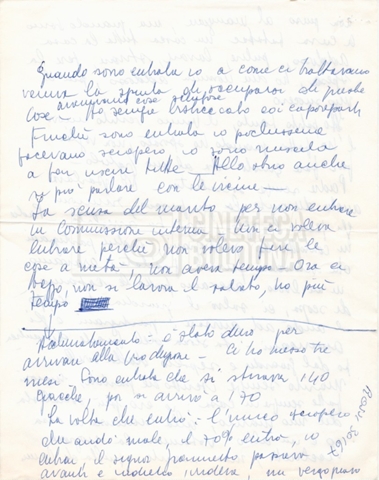 Quando sono entrata io a come ci trattavano
veniva la spinta di occuparsi di queste
avvenivano cose
cose - Ho sempre litigato coi caporeparti
Finché sono entrata io pochissime
facevano sciopero io sono riuscita
a far uscire tutte - Allo stiro anche
si può parlare con le vicine -
La scusa del marito per non entrare
in Commissione interna - Non ci volevo
entrare perché non volevo fare le
cose a metà, non avevo tempo - Ora ci
sto, non si lavora il sabato, ho più
tempo
- è stato duro per
arrivare alla produzione - Ci ho messo tre
mesi - Sono entrata che si stirava 140
giacche, poi si arrivò a 170
La volta che entrò - l'unico sciopero
che andò male, il 70% entrò, io
entrai, il signor passava
avanti e indietro, rideva, mi vergognavo